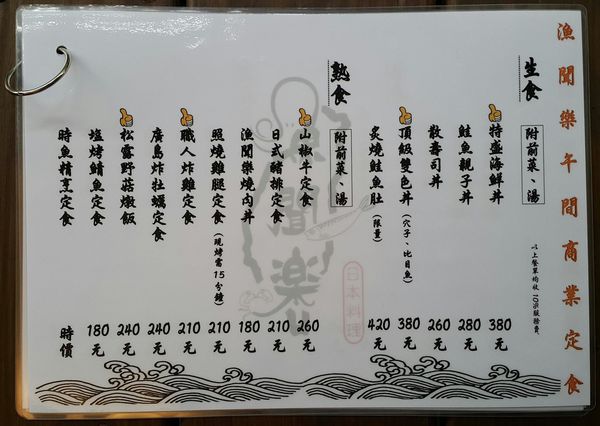 漁聞樂午間商業定食
生食
附前菜、湯
以上餐單均收10%服務費
特盛海鮮丼 380元
鮭魚親子丼 280元
散壽司丼 260元
頂級雙色丼(穴子、比目魚) 380元
炙燒鮭魚肚(限量) 420元
熟食
附前菜、湯
山椒牛定食 260元
日式豬排定食 210元
漁聞樂燒肉丼 180元
照燒雞腿定食(現烤需15分鐘) 210元
職人炸雞定食 210元
廣島炸牡蠣定食 240元
松露野菇燉飯 240元
塩烤鯖魚定食 180元
時魚精烹定食 時價
漁聞楽
日本料理